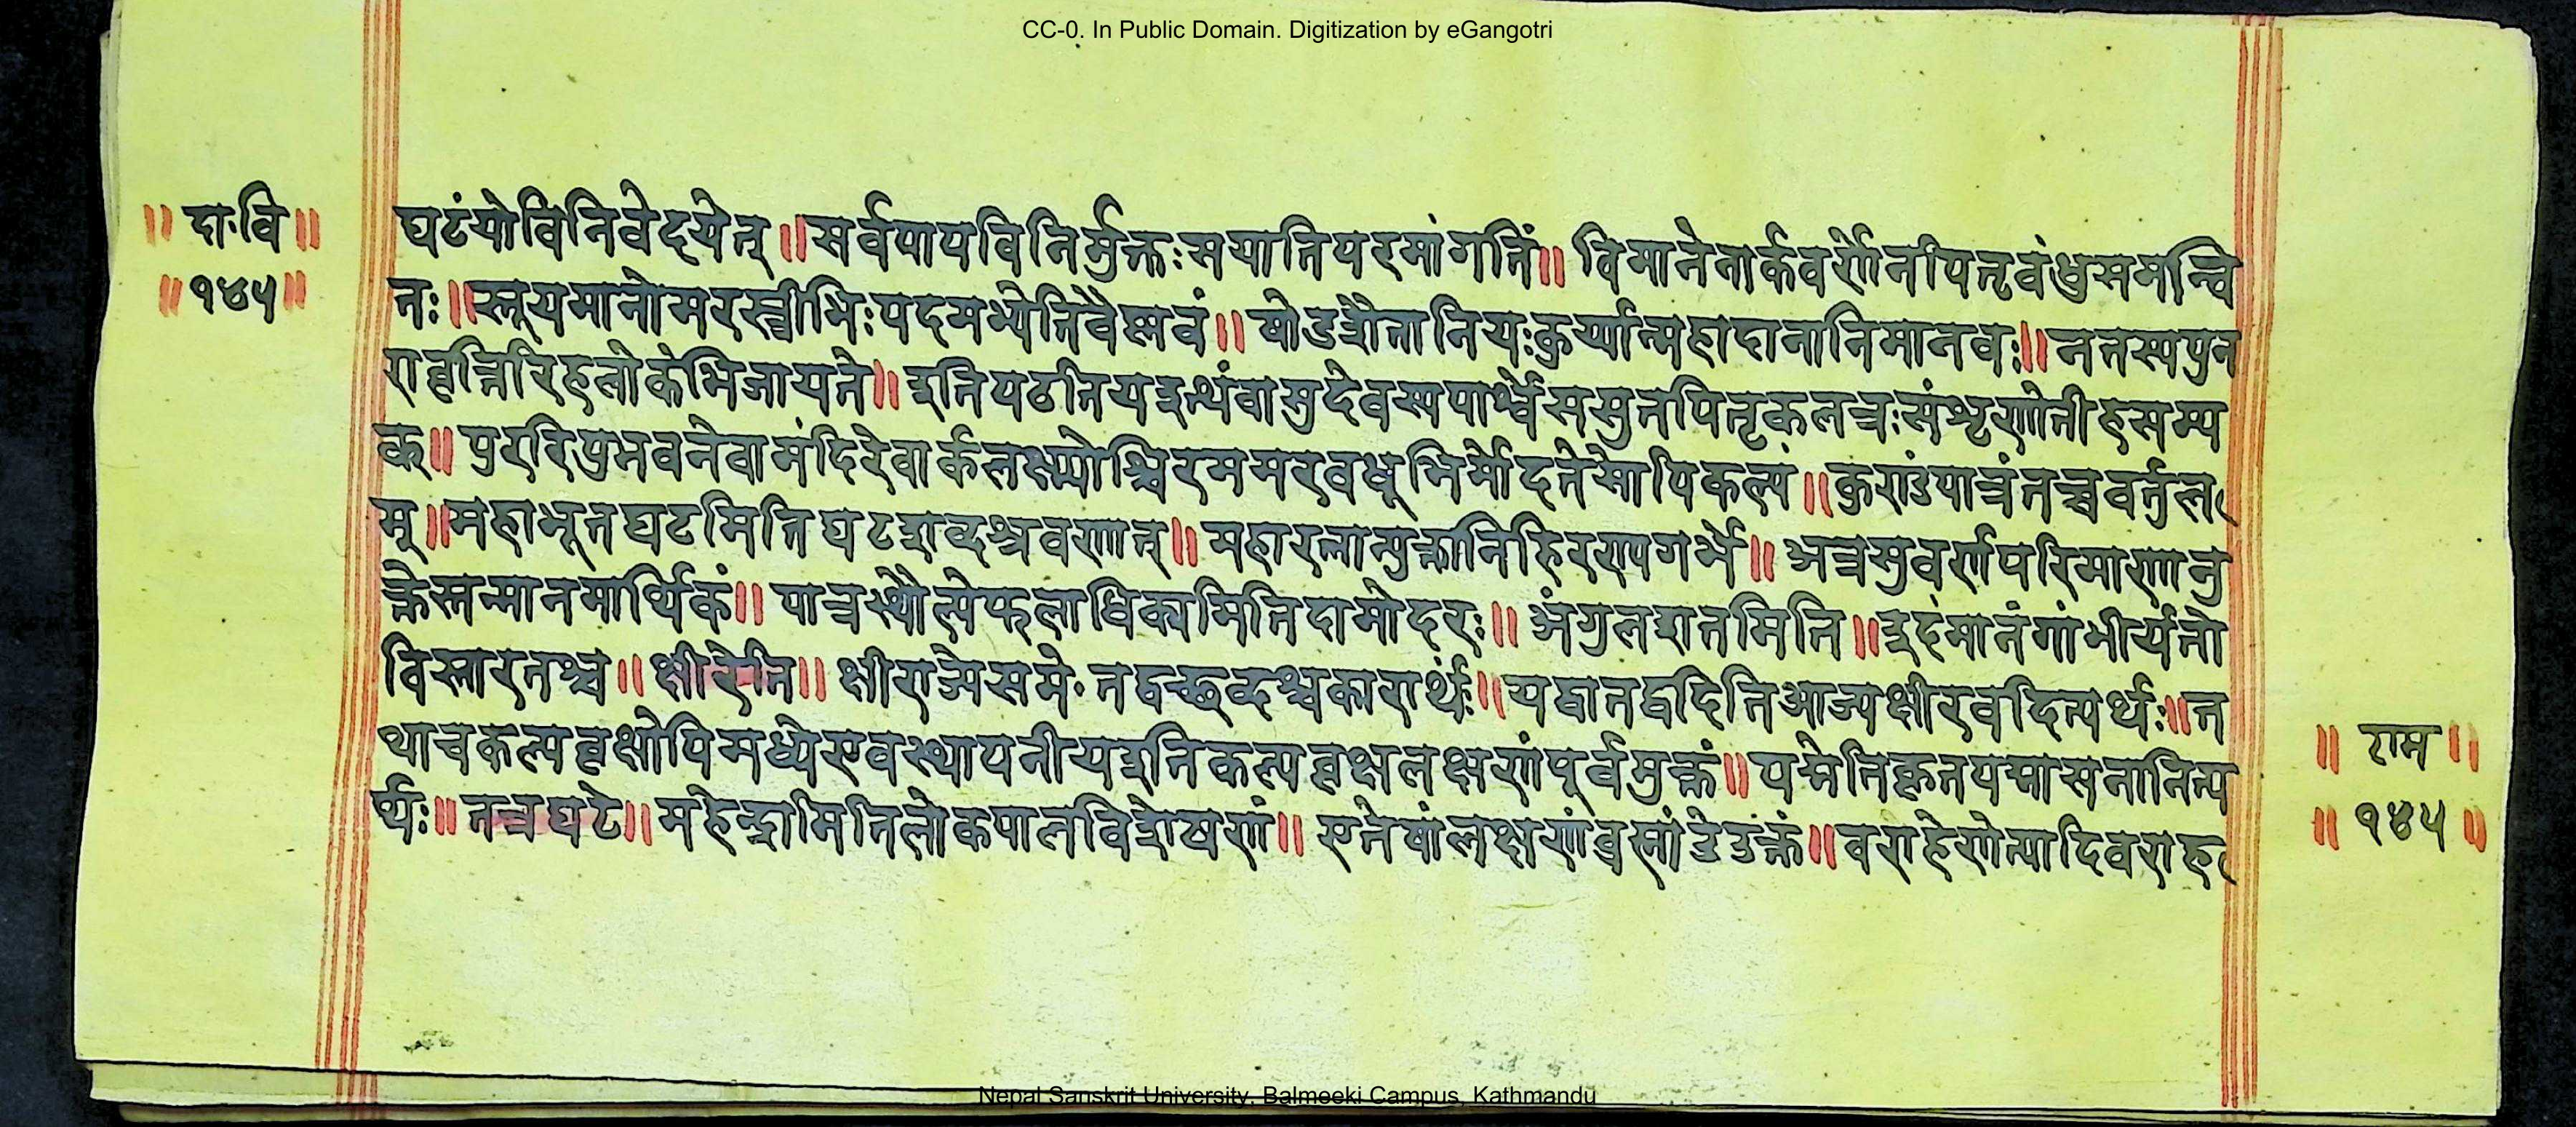 CC-0. In Public Domain. Digitization by eGangotri
॥ दा॰वि॥
॥१४५॥
घटंयोविनिवेदयेत्॥सर्वपापविनिर्मुक्तःसयातिपरमांगतिं॥ विमानेनार्कवर्णेनपितृबंधुसमन्वि
तः॥स्तूयमानोमरस्त्रीभिःपदमभ्येतिवैष्णवं॥ षोडशैतानियःकुर्य्यान्महादानानिमानवः॥ नतस्यपुन
रावृत्तिरिहलोकेभिजायते॥ इतिपठतियइत्थंवासुदेवस्यपार्श्वेससुतपितृकलत्रःसंशृणोतीहसम्य
क्॥ पुररिपुभवनेवामंदिरेवार्कलक्ष्म्योश्चिरममरवधूभिर्मोदतेसोपिकल्पं॥कुराडंपात्रंतच्चवर्तुल
म्॥महाभूतघटमितिघटशब्दश्रवणात्॥ महारत्नान्युक्तानिहिरण्यगर्भे॥ अत्रसुवर्णपरिमाणानु
क्तेस्तन्मानमार्थिकं॥ पात्रस्थौल्येफलाधिक्यमितिदामोदरः॥ अंगुलशतमिति॥इदंमानंगांभीर्यतो
विस्तारतश्च॥ क्षीरेति॥ क्षीराज्येसमे॰ तद्वच्छब्दश्चकारार्थः॥यद्वातद्वदितिआज्यक्षीरवदित्यर्थः॥त
थाचकल्पवृक्षोपिमध्येएवस्थापनीयइतिकल्पवृक्षलक्षणंपूर्वमुक्तं॥पद्मेतिकृतपद्मासनानित्य
र्थः॥ तत्रघटे॥ महेन्द्रामितिलोकपालविशेषणं॥ एतेषांलक्षणंब्रह्मांडेउक्तं॥वराहेणेत्यादिवराह
॥ राम॥
॥ १४५ ॥
Nepal Sanskrit University, Balmeeki Campus, Kathmandu